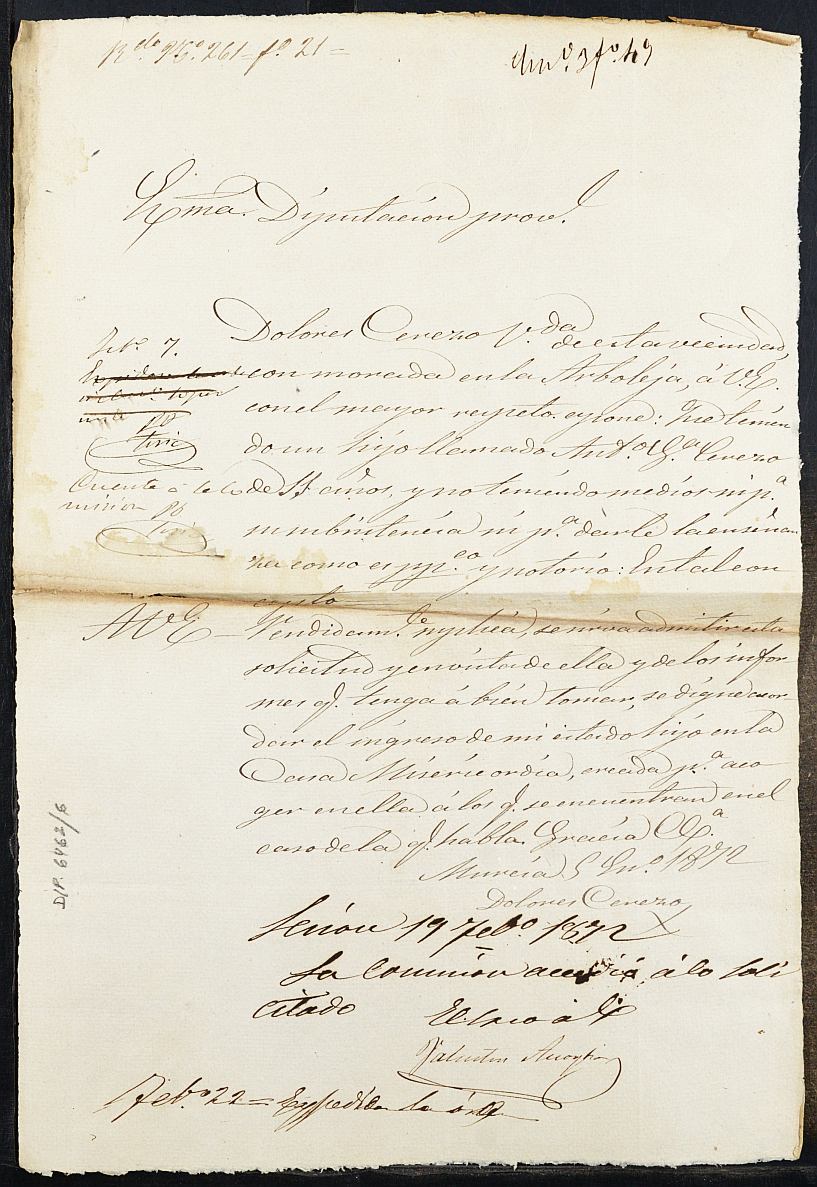 fº 21 =
fº 49
Exma. Diputación provl.
Dolores Cerezo Vda de esta vecindad,
con morada en la Arboleja, á V.E.
con el mayor respeto expone: Que tenien
do un hijo llamado Antº Gª Cerezo
de 11 años, y no teniendo medios ni pª
su subsistencia ni pª darle la enseñan
za como es ppco y notorio: En tal con
cepto
A V E - Rendidamte suplica, se sirva admitir esta
solicitud y en vista de ella y de los infor
mes q. tenga á bien tomar, se digne acor-
dar el ingreso de mi citado hijo en la
Casa Misericordia, creada pª aco
ger en ella á los q. se encuentran en el
caso de la q. habla. Gracia &ª
Murcia 5 Enº 1872
Dolores Cerezo
7.
Cuenta á la Co
mision
Sesion 19 Febº 1872
La Comision accedió á lo soli
citado
El Srio
Valentin
Febº 22 = Expedida la órn
D/P. 6462/6